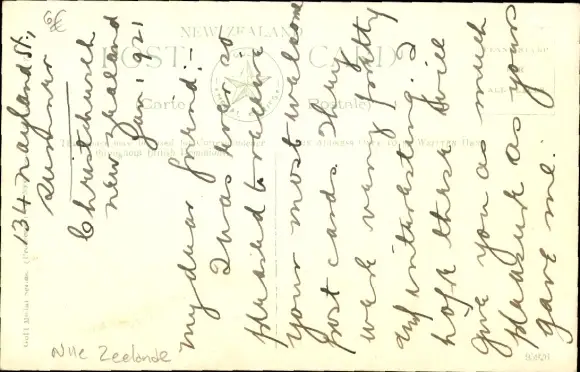 134 Nayland St.,
Sumner
Christchurch
New Zealand
Jan' 1921
My dear friend!
I was ever so
pleased to receive
your most welcome
post cards. They
were very pretty
and interesting. I
hope these will
give you as much
pleasure as yours
gave me.
NEW ZEALAND
POST CARD
Carte Postale
Nlle Zeelande